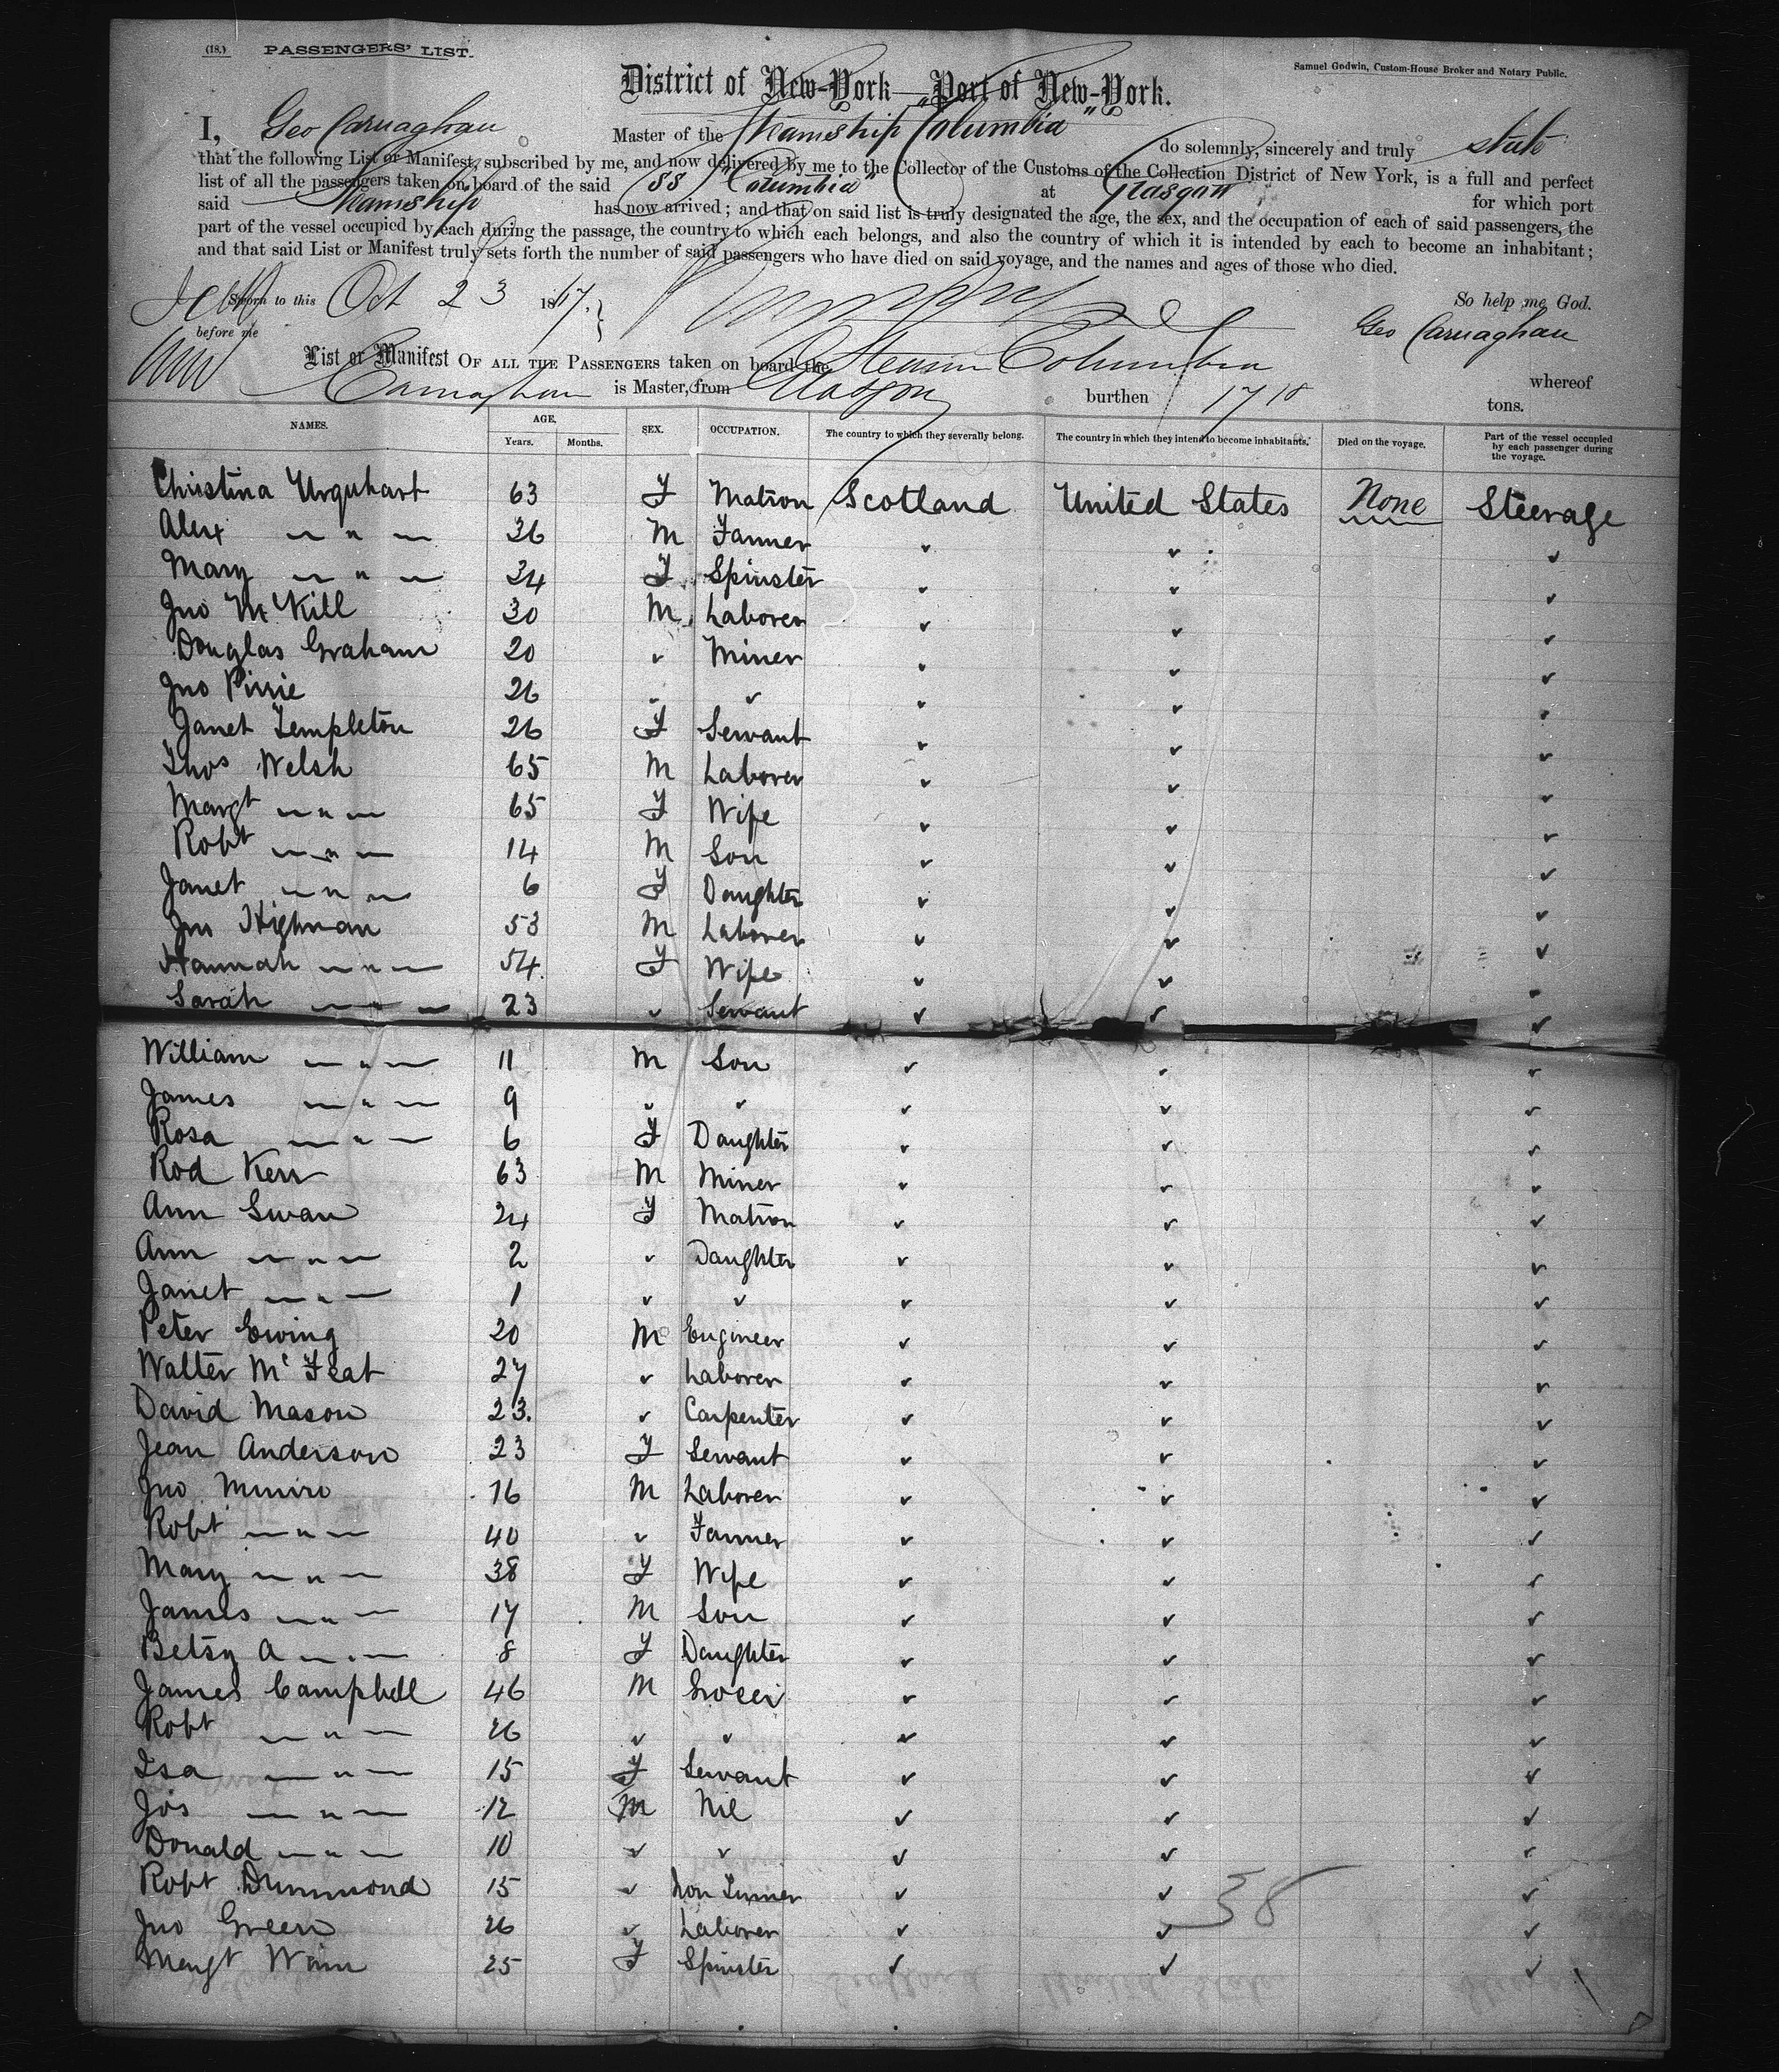 (18.) PASSENGERS' LIST.
Samuel Godwin, Custom-House Broker and Notary Public.
District of New-York—Port of New-York.
I, Geo Carnaghan Master of the Steamship "Columbia" do solemnly, sincerely and truly state
that the following List or Manifest, subscribed by me, and now delivered by me to the Collector of the Customs of the Collection District of New York, is a full and perfect
list of all the passengers taken on board of the said SS "Columbia" at Glasgow for which port
said Steamship has now arrived; and that on said list is truly designated the age, the sex, and the occupation of each of said passengers, the
part of the vessel occupied by each during the passage, the country to which each belongs, and also the country of which it is intended by each to become an inhabitant;
and that said List or Manifest truly sets forth the number of said passengers who have died on said voyage, and the names and ages of those who died.
Sworn to this Oct 23 1867. So help me God.
before me Geo Carnaghan
List or Manifest OF ALL THE PASSENGERS taken on board the Steam Columbia whereof
Carnaghan is Master, from Glasgow burthen 1710 tons.
NAMES. AGE. Years. Months. SEX. OCCUPATION. The country to which they severally belong. The country in which they intend to become inhabitants. Died on the voyage. Part of the vessel occupied by each passenger during the voyage.
Christina Urquhart 63 F Matron Scotland United States None Steerage
Alex — " — 36 M Farmer ✓ ✓ ✓
Mary — " — 34 F Spinster ✓ ✓ ✓
Jno McKill 30 M Laborer ✓ ✓ ✓
Douglas Graham 20 ✓ Miner ✓ ✓ ✓
Jno Pirrie 26 ✓ ✓ ✓ ✓ ✓
Janet Templeton 26 F Servant ✓ ✓ ✓
Thos Welsh 65 M Laborer ✓ ✓ ✓
Margt — " — 65 F Wife ✓ ✓ ✓
Robt — " — 14 M Son ✓ ✓ ✓
Janet — " — 6 F Daughter ✓ ✓ ✓
Jno Highman 53 M Laborer ✓ ✓ ✓
Hannah — " — 54 F Wife ✓ ✓ ✓
Sarah — " — 23 ✓ Servant ✓ ✓ ✓
William — " — 11 M Son ✓ ✓ ✓
James — " — 9 ✓ ✓ ✓ ✓ ✓
Rosa — " — 6 F Daughter ✓ ✓ ✓
Rod Kerr 63 M Miner ✓ ✓ ✓
Ann Swan 24 F Matron ✓ ✓ ✓
Ann — " — 2 ✓ Daughter ✓ ✓ ✓
Janet — " — 1 ✓ ✓ ✓ ✓ ✓
Peter Ewing 20 M Engineer ✓ ✓ ✓
Walter McFeat 27 ✓ Laborer ✓ ✓ ✓
David Mason 23. ✓ Carpenter ✓ ✓ ✓
Jean Anderson 23 F Servant ✓ ✓ ✓
Jno Munro 76 M Laborer ✓ ✓ ✓
Robt — " — 40 ✓ Farmer ✓ ✓ ✓
Mary — " — 38 F Wife ✓ ✓ ✓
James — " — 17 M Son ✓ ✓ ✓
Betsy A — " — 8 F Daughter ✓ ✓ ✓
James Campbell 46 M Grocer ✓ ✓ ✓
Robt — " — 26 ✓ ✓ ✓ ✓ ✓
Isa — " — 15 F Servant ✓ ✓ ✓
Jos — " — 12 M Nil ✓ ✓ ✓
Donald — " — 10 ✓ ✓ ✓ ✓ ✓
Robt Drummond 15 ✓ Iron Turner ✓ ✓ ✓
Jno Green 26 ✓ Laborer ✓ ✓ ✓
Margt 25 F Spinster ✓ ✓ ✓
38